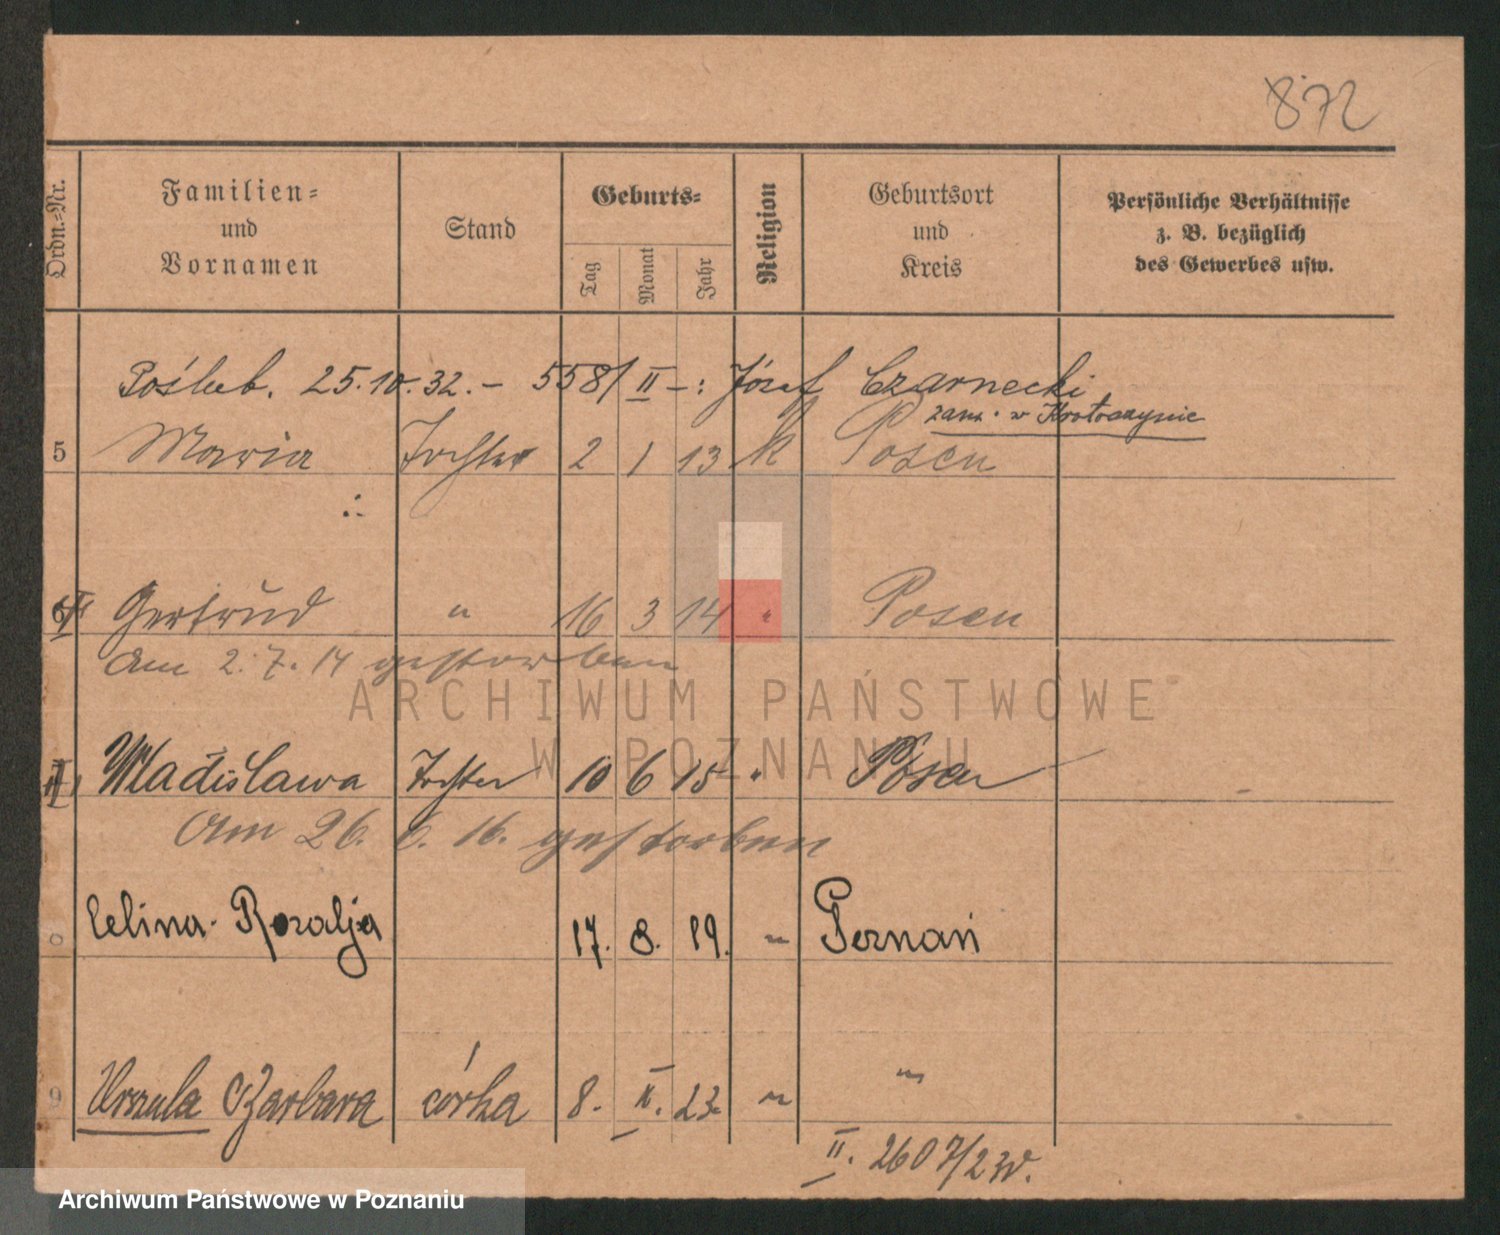 872
Ordn.-Nr.
Familien- und Vornamen
Stand
Geburts-
Tag
Monat
Jahr
Religion
Geburtsort und Kreis
Persönliche Verhältnisse z. B. bezüglich des Gewerbes usw.
Poślub. 25.10.32. – 558/II – : Józef Czarnecki
zam. w Krotoszynie
5 Maria Tochter 2 1 13 k Posen
Gertrud " 16 3 14 " Posen
Am 2.7.14 gestorben
ARCHIWUM PAŃSTWOWE
W POZNANIU
Wladislawa Tochter 10 6 15 " Posen
Am 26. 6. 16. gestorben
Celina Rozalja 17. 8. 19. " Poznań
9 Urszula Barbara córka 8. X. 23 " "
II. 2607/23
Archiwum Państwowe w Poznaniu